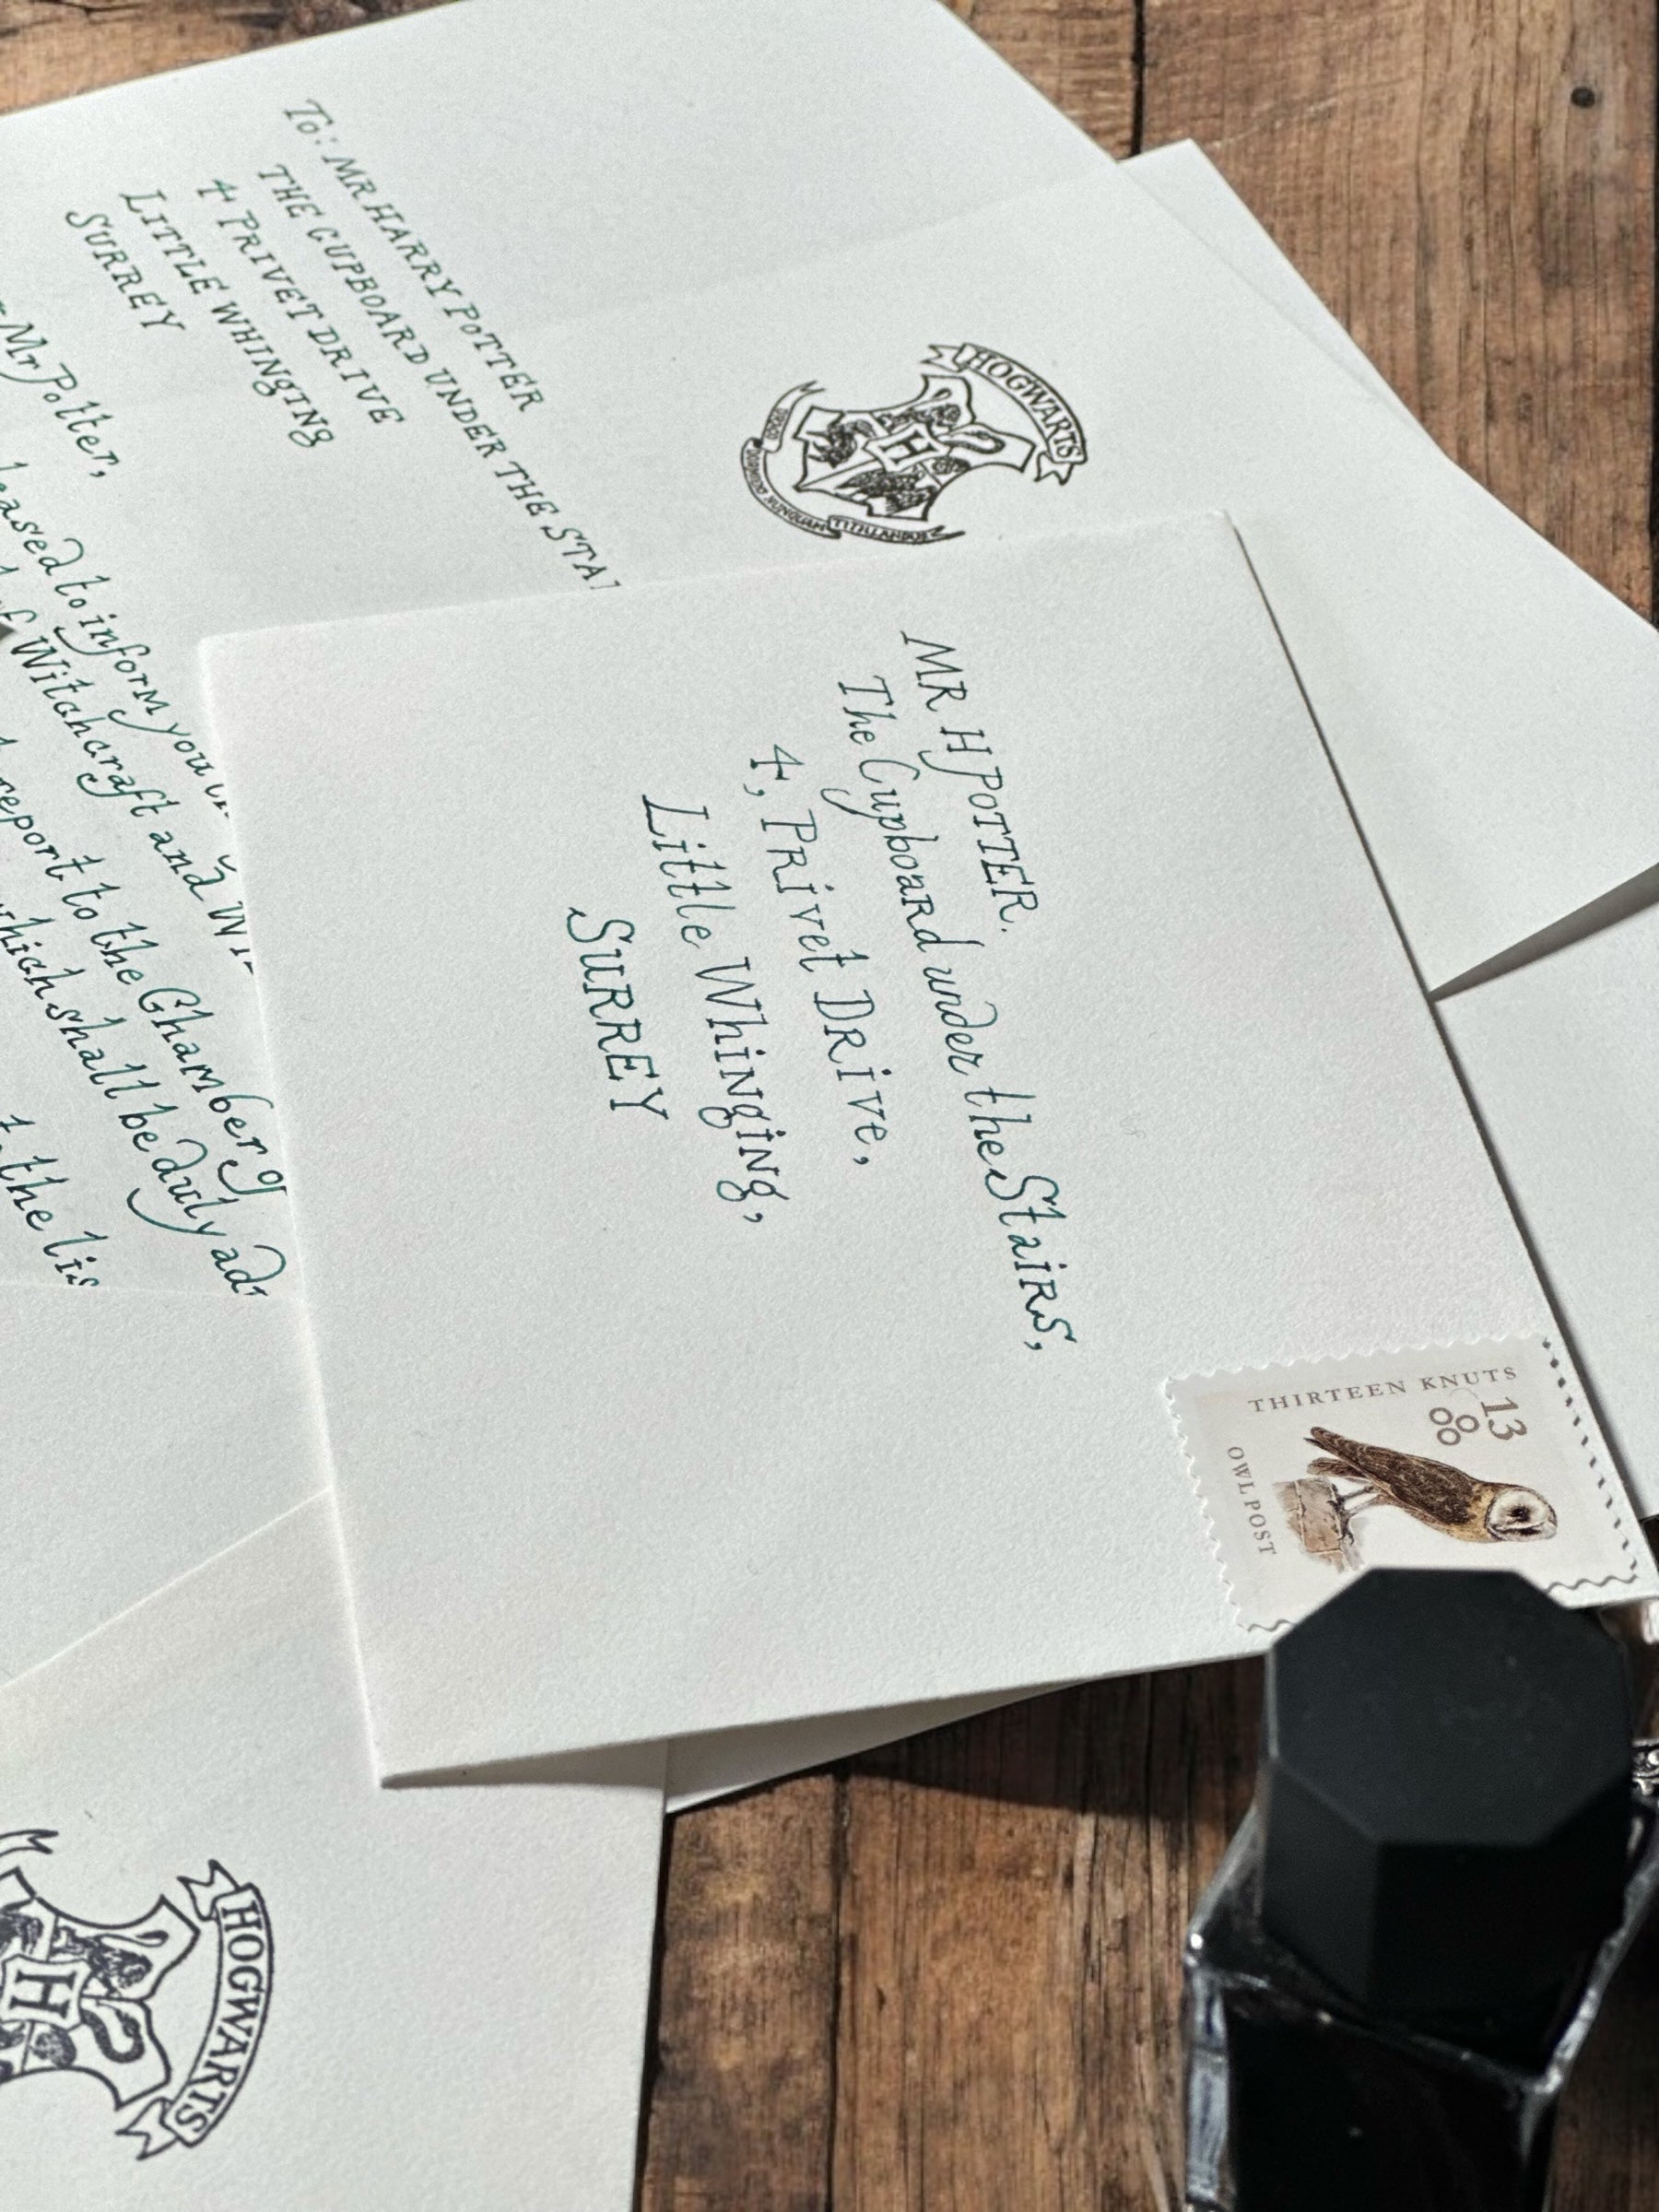 To: MR HARRY POTTER
THE CUPBOARD UNDER THE STAI
4 PRIVET DRIVE
LITTLE WHINGING
SURREY
Mr Potter,
leased to inform you
of Witchcraft and Wi
report to the Chamber of
which shall be duly ad
to the lis
HOGWARTS
H
DRACO DORMIENS NUNQUAM TITILLANDUS
MR H POTTER.
The Cupboard under the Stairs,
4, Privet Drive,
Little Whinging,
SURREY
THIRTEEN KNUTS
13
OWL POST
HOGWARTS
H